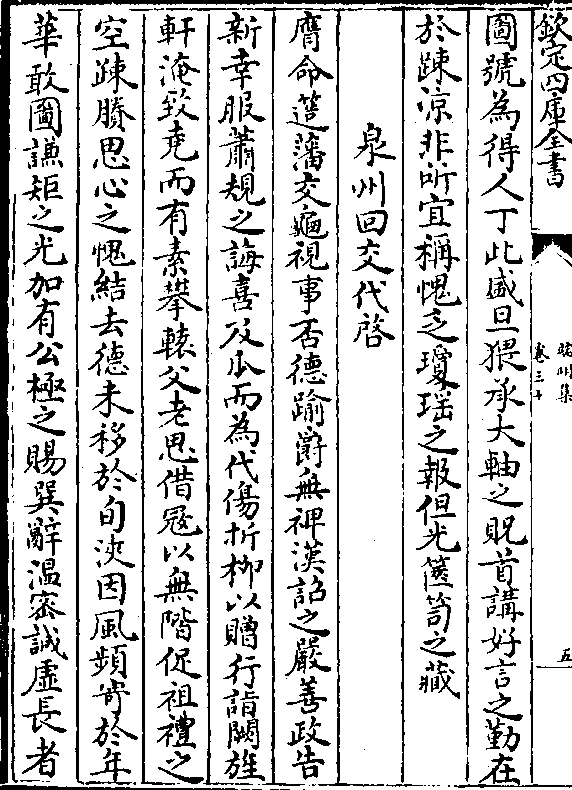 欽定四庫全書
圖號為得人丁此盛旦猥承大軸之貺首講好言之勤在
於踈涼非所宜稱愧乏瓊瑶之報但光篋笥之藏
泉州回交代啓
膺命莚藩交龜視事否德踰溽無裨漢詔之嚴善政告
新幸服蕭規之誨喜及瓜而為代傷折栁以贈行詣闕旌
軒淹致堯而有素攀轅父老思借冦以無階促祖禮之
空踈賸思心之愧結去德未移於旬浹因風頻寄於年
華敢圖謙矩之光加有公極之賜巽辭温宻誠虛長者
卷三十
五